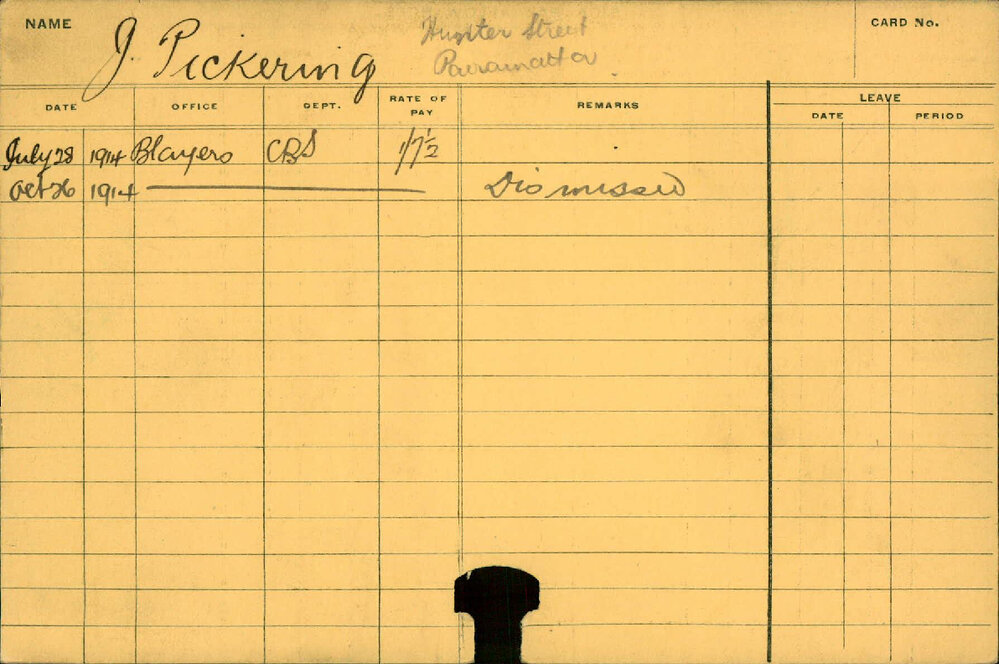 NAME J. Pickering Hunter Street CARD No.
Parramatta
DATE OFFICE DEPT. RATE OF PAY REMARKS LEAVE
DATE PERIOD
July 28 1914 Blayers CBS 1/7½
Oct 26 1914 Dismissed